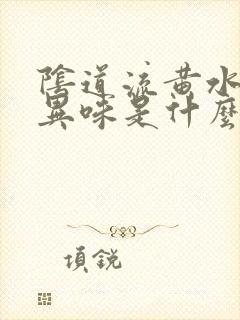 陰道流黃水
異味是什麼
項銳